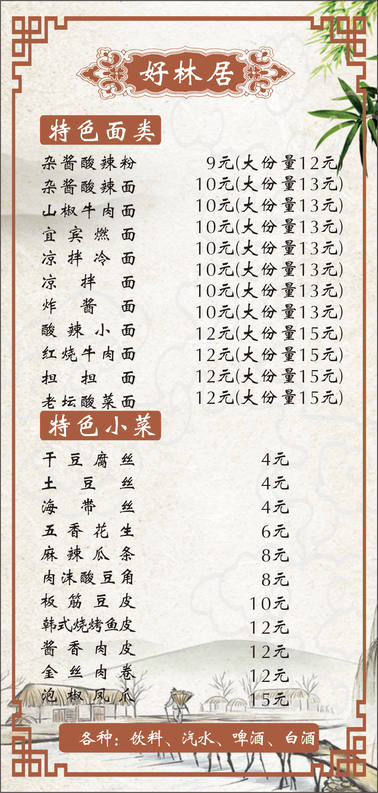 好林居
特色面类
杂酱酸辣粉 9元(大份量12元)
杂酱酸辣面 10元(大份量13元)
山椒牛肉面 10元(大份量13元)
宜宾燃面 10元(大份量13元)
凉拌冷面 10元(大份量13元)
凉拌面 10元(大份量13元)
炸酱面 10元(大份量13元)
酸辣小面 12元(大份量15元)
红烧牛肉面 12元(大份量15元)
担担面 12元(大份量15元)
老坛酸菜面 12元(大份量15元)
特色小菜
干豆腐丝 4元
土豆丝 4元
海带丝 4元
五香花生 6元
麻辣瓜条 8元
肉沫酸豆角 8元
板筋豆皮 10元
韩式烧烤鱼皮 12元
酱香肉皮 12元
金丝肉卷 12元
泡椒凤爪 15元
各种：饮料、汽水、啤酒、白酒